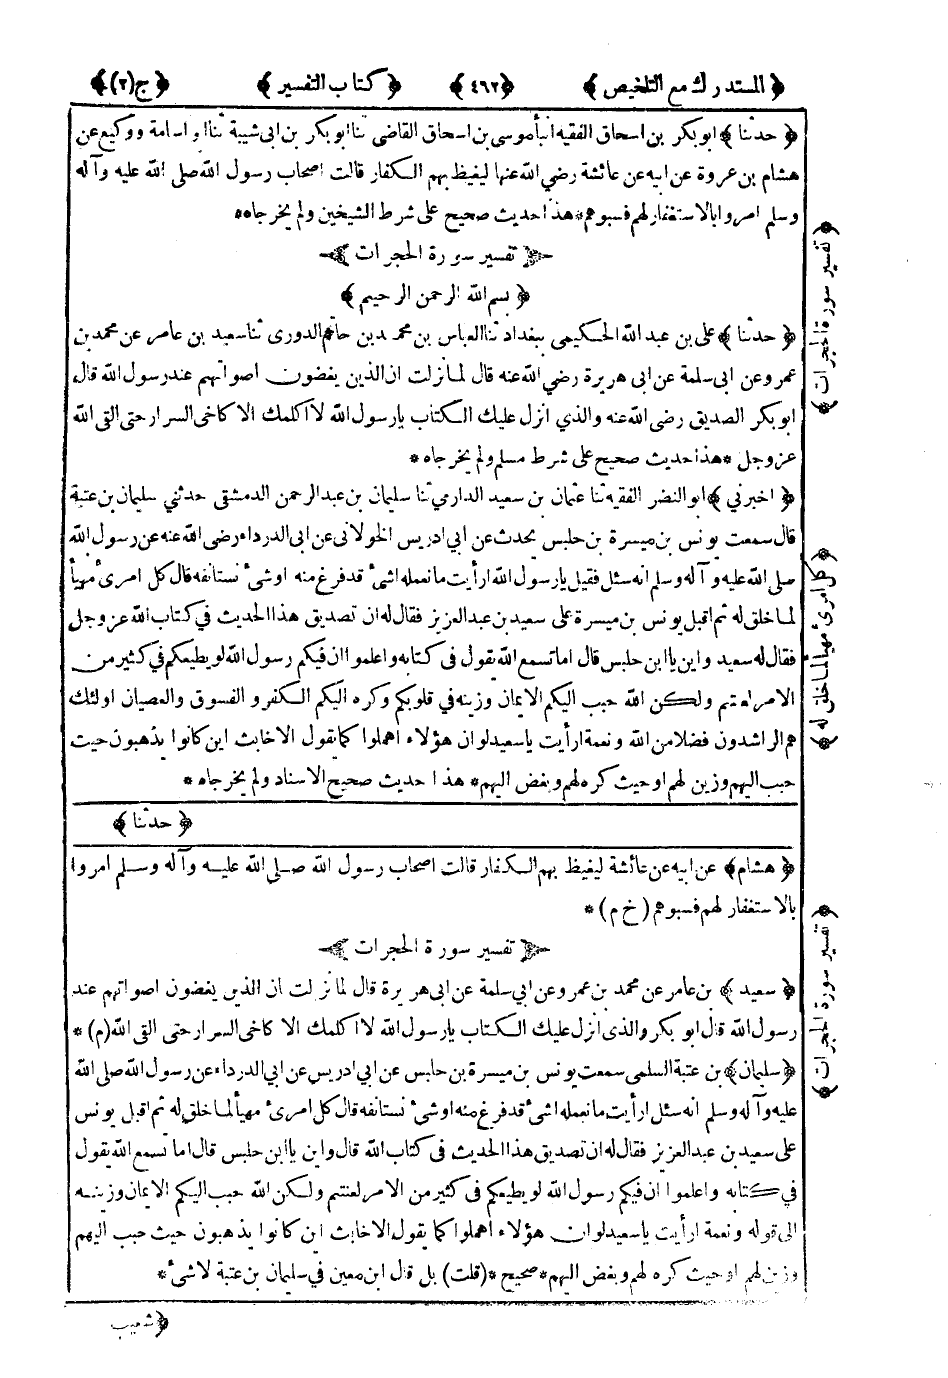 ﴿ المستدرك مع التلخيص ﴾ ﴿٤٦٢﴾ ﴿ كتاب التفسير ﴾ ﴿ج (٢)﴾
﴿ حدثنا ﴾ ابو بكر بن اسحاق الفقيه انبأ موسى بن اسحاق القاضى ثنا ابو بكر بن ابى شيبة ثنا ابو اسامة ووكيع عن
هشام بن عروة عن ابيه عن عائشة رضي الله عنها ليغيظ بهم الكفار قالت اصحاب رسول الله صلى الله عليه وآله
وسلم امروا بالاستغفار لهم فسبوهم * هذا حديث صحيح على شرط الشيخين ولم يخرجاه *
﴿ تفسير سورة الحجرات ﴾
﴿ بسم الله الرحمن الرحيم ﴾
﴿ حدثنا ﴾ على بن عبد الله الحكيمى ببغداد ثنا العباس بن محمد بن حاتم الدورى ثنا سعيد بن عامر عن محمد بن
عمرو عن ابى سلمة عن ابى هريرة رضي الله عنه قال لما نزلت ان الذين يغضون اصواتهم عند رسول الله قال
ابو بكر الصديق رضى الله عنه والذي انزل عليك الكتاب يا رسول الله لا اكلمك الا كاخى السرار حتى القى الله
عز وجل * هذا حديث صحيح على شرط مسلم ولم يخرجاه *
﴿ اخبرني ﴾ ابو النضر الفقيه ثنا عثمان بن سعيد الدارمي ثنا سليمان بن عبد الرحمن الدمشقى حدثني سليمان بن عتبة
قال سمعت يونس بن ميسرة بن حلبس يحدث عن ابي ادريس الخولانى عن ابى الدرداء رضى الله عنه عن رسول الله
صلى الله عليه وآله وسلم انه سئل فقيل يا رسول الله ارأيت ما نعمله اشئ قد فرغ منه او شئ نستانفه قال كل امرئ مهيأ
لما خلق له ثم اقبل يونس بن ميسرة على سعيد بن عبد العزيز فقال له ان تصديق هذا الحديث في كتاب الله عز وجل
فقال له سعيد واين يا ابن حلبس قال اما تسمع الله يقول فى كتابه واعلموا ان فيكم رسول الله لو يطيعكم في كثير من
الامر لعنتم ولكن الله حبب اليكم الايمان وزينه في قلوبكم وكره اليكم الكفر والفسوق والعصيان اولئك
هم الراشدون فضلا من الله ونعمة ارأيت يا سعيد لو ان هؤلاء اهملوا كما يقول الاخابث اين كانوا يذهبون حيث
حبب اليهم وزين لهم او حيث كره لهم وبغض اليهم * هذا حديث صحيح الاسناد ولم يخرجاه *
﴿ حدثنا ﴾
﴿ هشام ﴾ عن ابيه عن عائشة ليغيظ بهم الكفار قالت اصحاب رسول الله صلى الله عليه وآله وسلم امروا
بالاستغفار لهم فسبوهم (خ م) *
﴿ تفسير سورة الحجرات ﴾
﴿ سعيد ﴾ بن عامر عن محمد بن عمرو عن ابي سلمة عن ابى هريرة قال لما نزلت ان الذين يغضون اصواتهم عند
رسول الله قال ابو بكر والذى انزل عليك الكتاب يا رسول الله لا اكلمك الا كاخى السرار حتى القى الله (م) *
﴿ سليمان ﴾ بن عتبة السلمى سمعت يونس بن ميسرة بن حلبس عن ابي ادريس عن ابي الدرداء عن رسول الله صلى الله
عليه وآله وسلم انه سئل ارأيت ما نعمله اشئ قد فرغ منه او شئ نستانفه قال كل امرئ مهيأ لما خلق له ثم اقبل يونس
على سعيد بن عبد العزيز فقال له ان تصديق هذا الحديث فى كتاب الله قال واين يا ابن حلبس قال اما تسمع الله يقول
في كتابه واعلموا ان فيكم رسول الله لو يطيعكم فى كثير من الامر لعنتم ولكن الله حبب اليكم الايمان وزينه
الى قوله ونعمة ارأيت يا سعيد لو ان هؤلاء اهملوا كما يقول الاخابث اين كانوا يذهبون حيث حبب اليهم
وزين لهم او حيث كره لهم وبغض اليهم * صحيح * (قلت) بل قال ابن معين في سليمان بن عتبة لا شئ *
﴿ شعيب
﴿ تفسير سورة الحجرات ﴾
﴿ كل امرئ مهيأ لما خلق له ﴾
﴿ تفسير سورة الحجرات ﴾